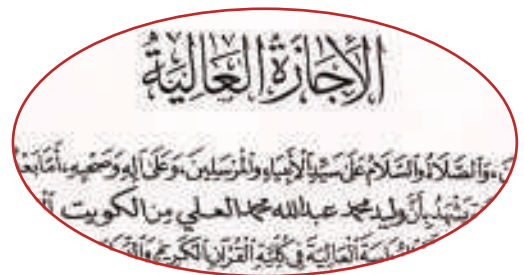 الإجازة العالية
وَالصَّلَاةُ وَالسَّلَامُ عَلَى سَيِّدِ الْأَنْبِيَاءِ وَالْمُرْسَلِينَ، وَعَلَى آلِهِ وَصَحْبِهِ، أَمَّا بَعْدُ
وليد محمد عبدالله محمد العلي من الكويت
الْعَالِيَةَ فِي كُلِّيَّةِ الْقُرْآنِ الْكَرِيمِ